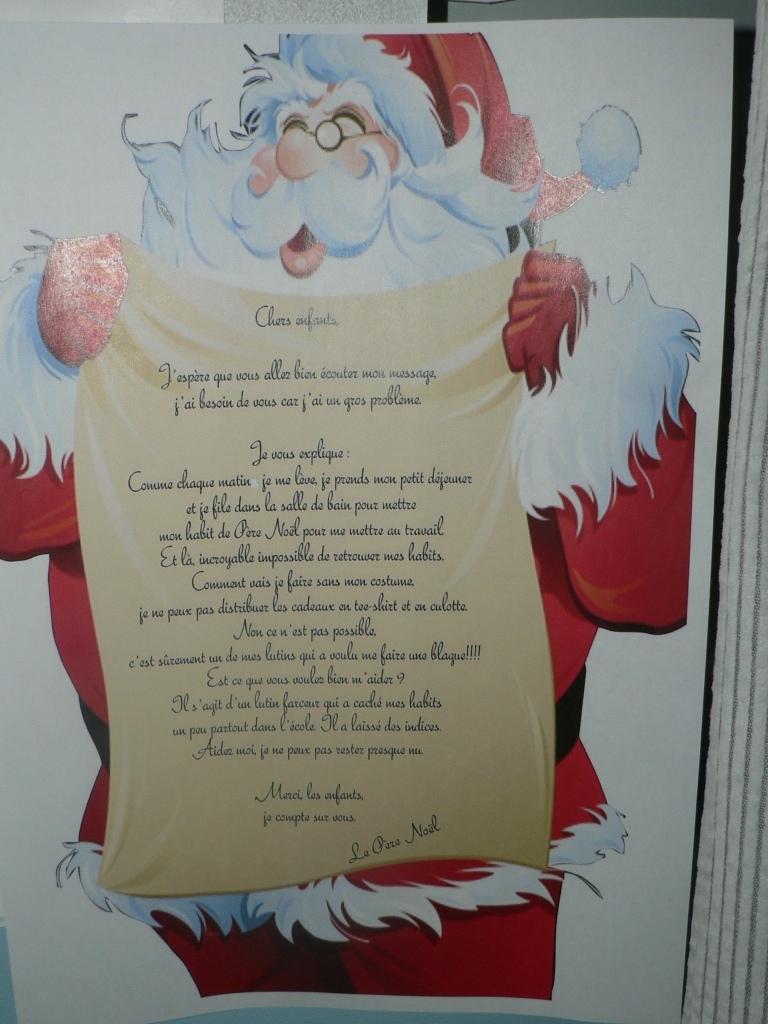 Chers enfants,
J'espère que vous allez bien écouter mon message,
j'ai besoin de vous car j'ai un gros problème.
Je vous explique :
Comme chaque matin je me lève, je prends mon petit déjeuner
et je file dans la salle de bain pour mettre
mon habit de Père Noël pour me mettre au travail
Et là, incroyable impossible de retrouver mes habits.
Comment vais je faire sans mon costume,
je ne peux pas distribuer les cadeaux en tee-shirt et en culotte.
Non ce n'est pas possible,
c'est sûrement un de mes lutins qui a voulu me faire une blague!!!!
Est ce que vous voulez bien m'aider ?
Il s'agit d'un lutin farceur qui a caché mes habits
un peu partout dans l'école. Il a laissé des indices.
Aidez moi, je ne peux pas rester presque nu.
Merci, les enfants,
je compte sur vous.
Le Père Noël